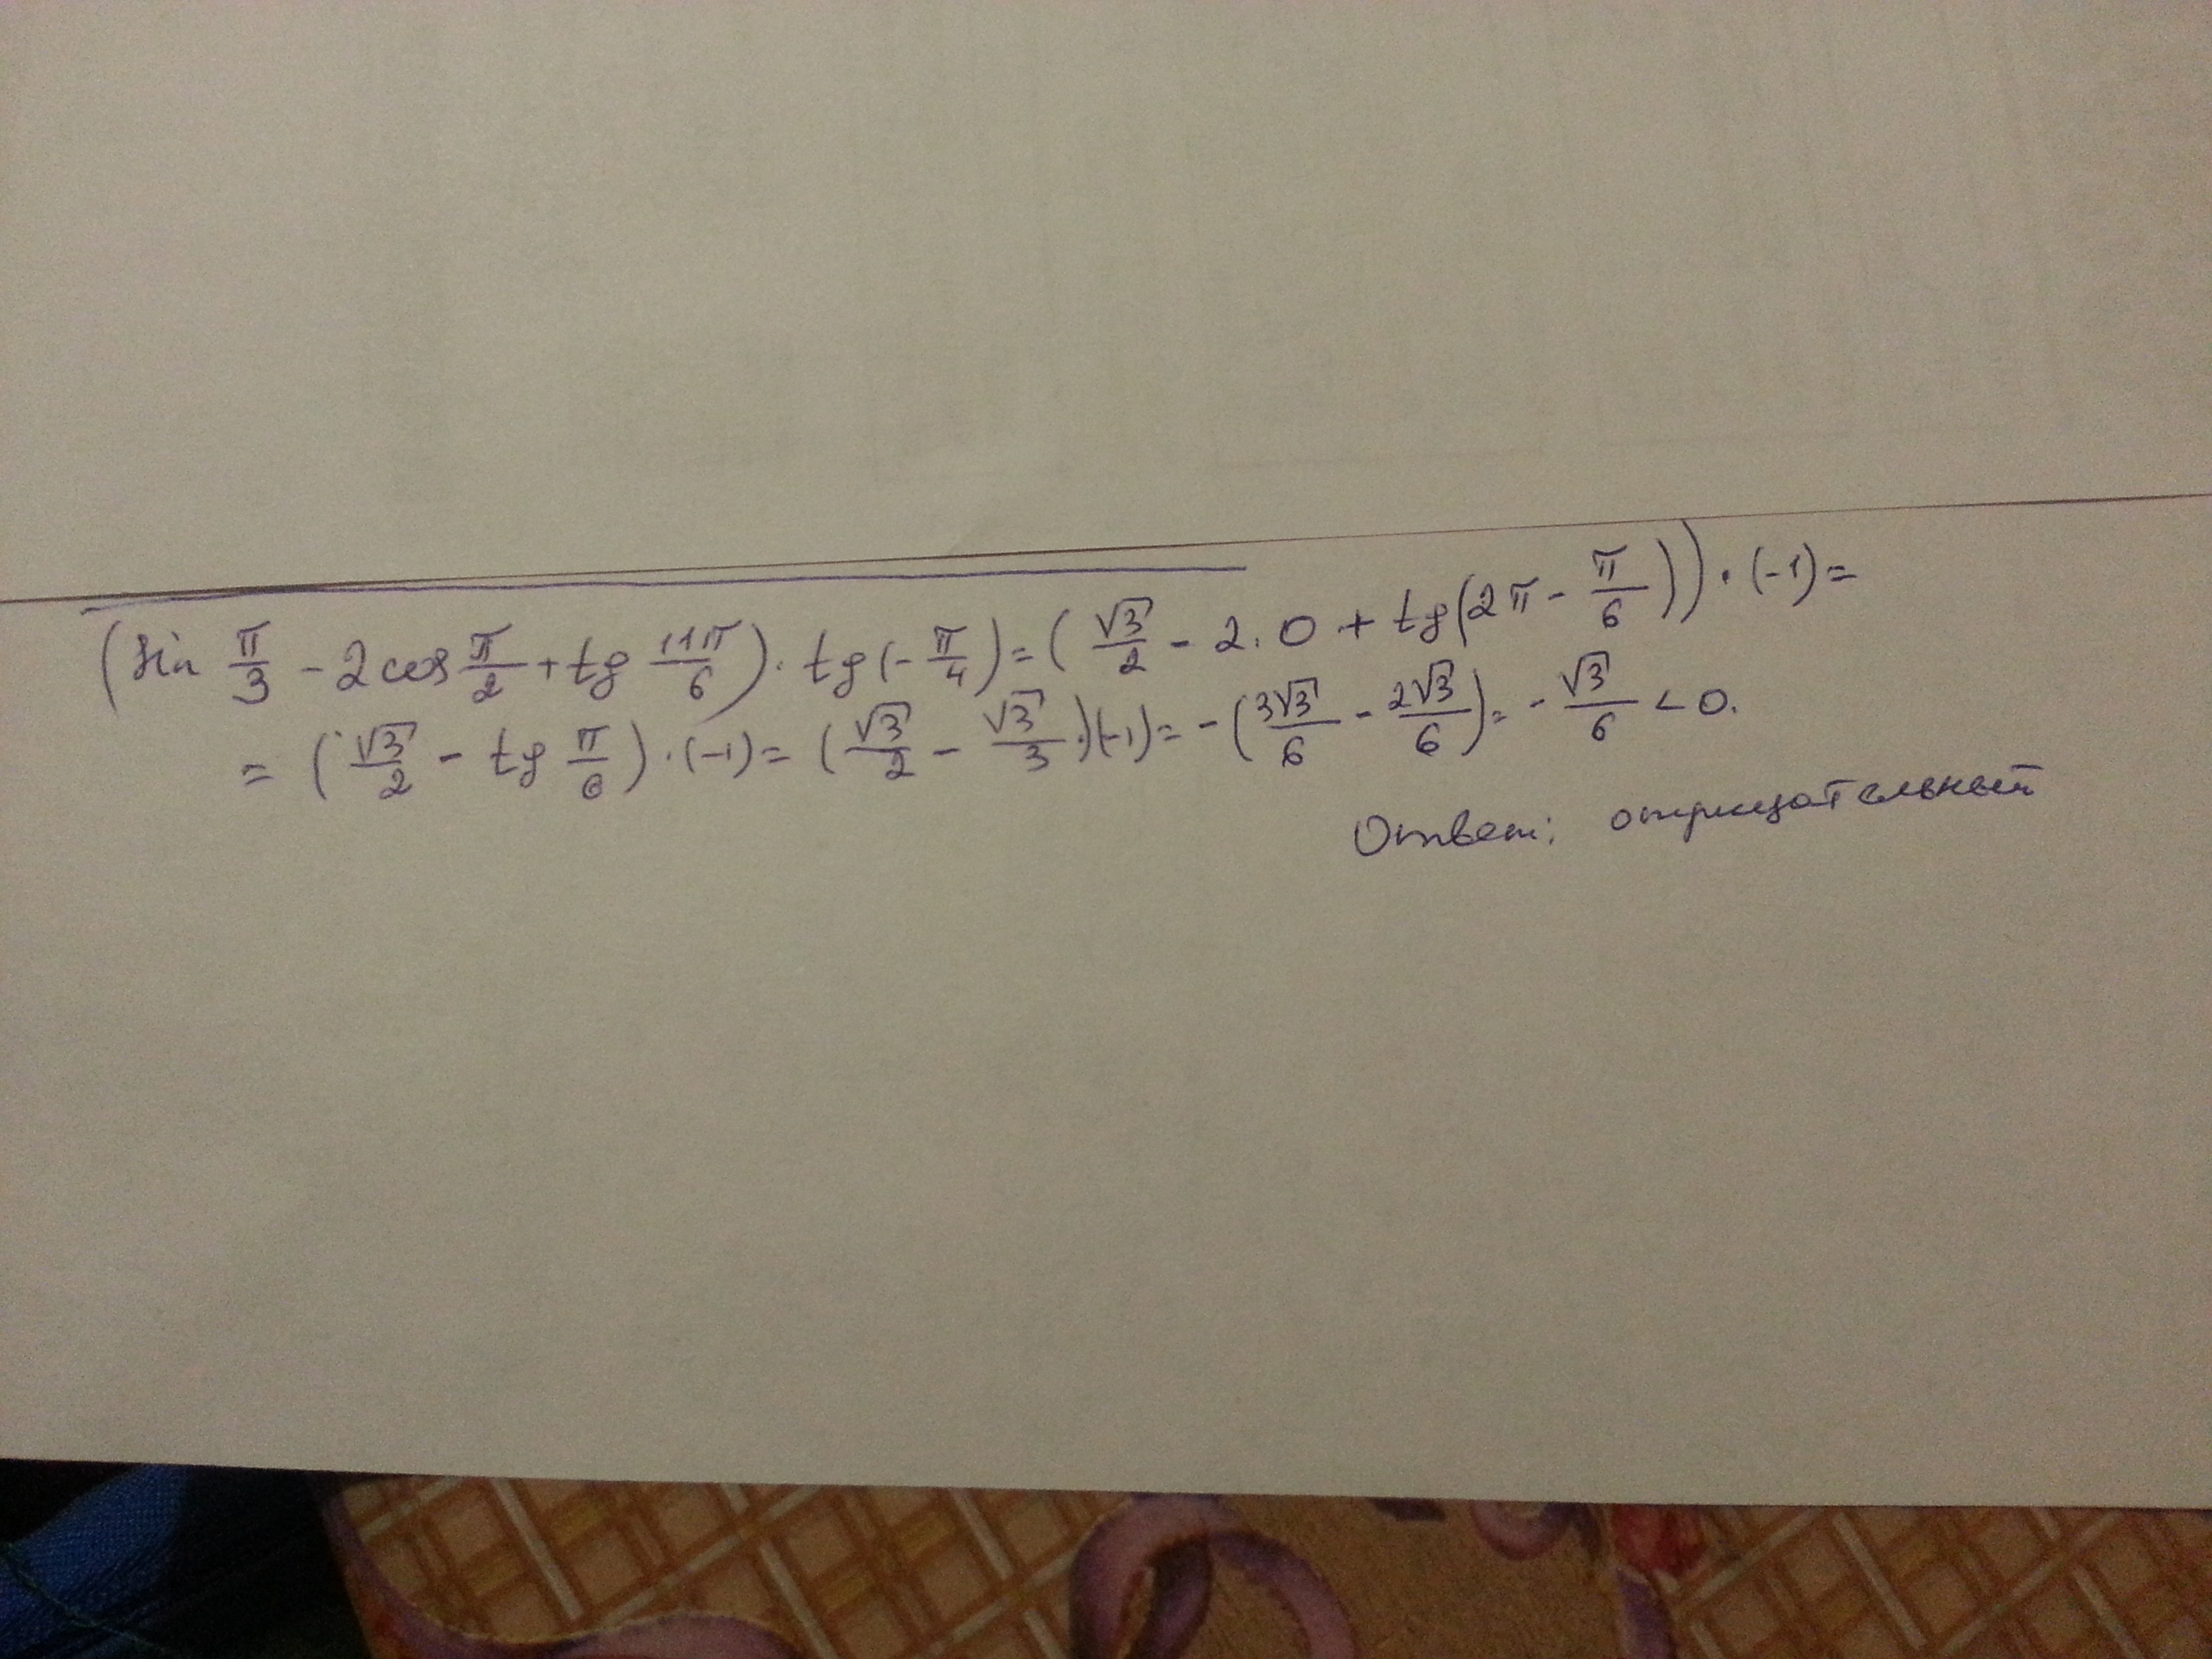 (sin π/3 - 2cos π/2 + tg 11π/6) · tg(-π/4) = (√3/2 - 2·0 + tg(2π - π/6)) · (-1) =
= (√3/2 - tg π/6) · (-1) = (√3/2 - √3/3)·(-1) = -(3√3/6 - 2√3/6) = -√3/6 < 0.
Ответ: отрицательный